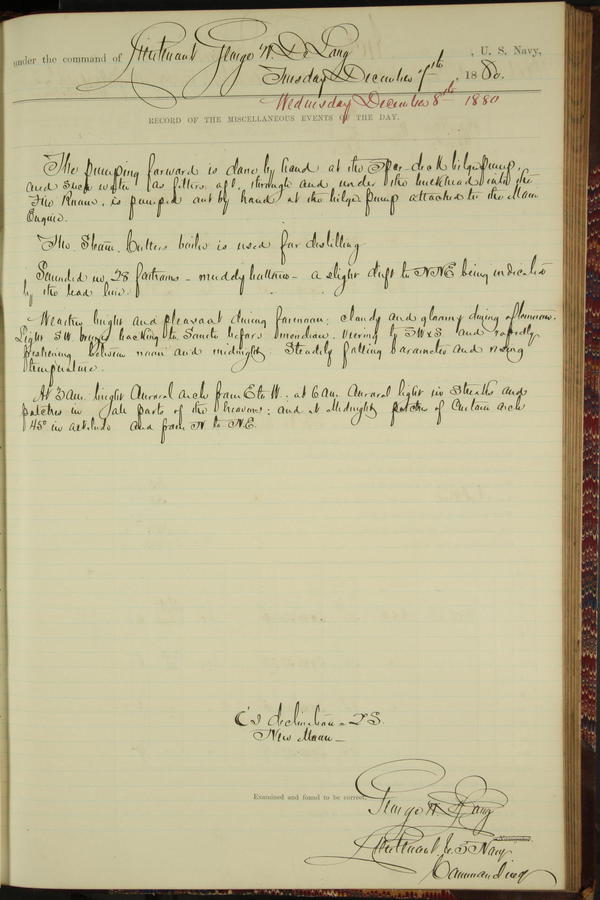 under the command of Lieutenant George W. De Long, U. S. Navy,
Tuesday December 7th, 1880.
Wednesday December 8th 1880
RECORD OF THE MISCELLANEOUS EVENTS OF THE DAY.
The pumping forward is done by hand at the Spar deck bilge pump,
and such water as filters aft, through and under the bulkhead into the
Fire Room, is pumped out by hand at the bilge pump attached to the Main
Engine.
The Steam Cutters boiler is used for distilling
Sounded in 28 fathoms - muddy bottom - a slight drift to NNE being indicated
by the lead line.
Weather bright and pleasant during forenoon; cloudy and gloomy during afternoon.
Light SW breeze backing to South before meridian, veering to SWxS and rapidly
freshening between noon and midnight. Steadily falling barometer and rising
temperature.
At 3 am. bright Auroral arch from E to W.; at 6 am. Auroral light in streaks and
patches in all parts of the heavens; and at Midnight patches of Curtain arch
45° in altitude and from N to NE.
☾'s declination - 2 S.
New Moon -
Examined and found to be correct.
George W. De Long
Lieutenant U.S. Navy
Commanding